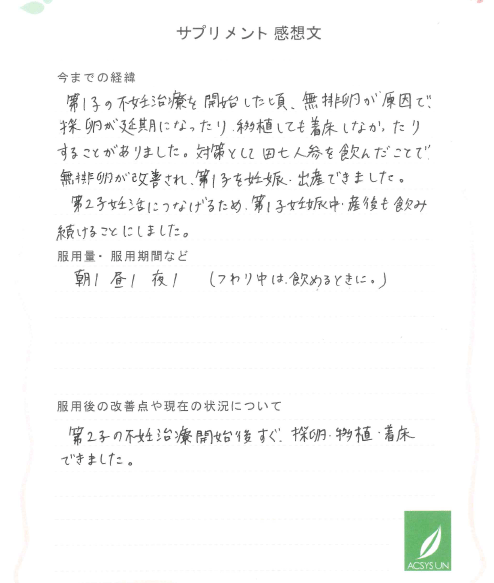 サプリメント 感想文
今までの経緯
第1子の不妊治療を開始した頃、無排卵が原因で、
採卵が延期になったり、移植しても着床しなかったり
することがありました。対策として田七人参を飲んだことで、
無排卵が改善され、第1子を妊娠・出産できました。
第2子妊活につなげるため、第1子妊娠中・産後も飲み
続けることにしました。
服用量・服用期間など
朝1 昼1 夜1 (つわり中は、飲めるときに。)
服用後の改善点や現在の状況について
第2子の不妊治療開始後すぐ、採卵・移植・着床
できました。
ACSYS UN